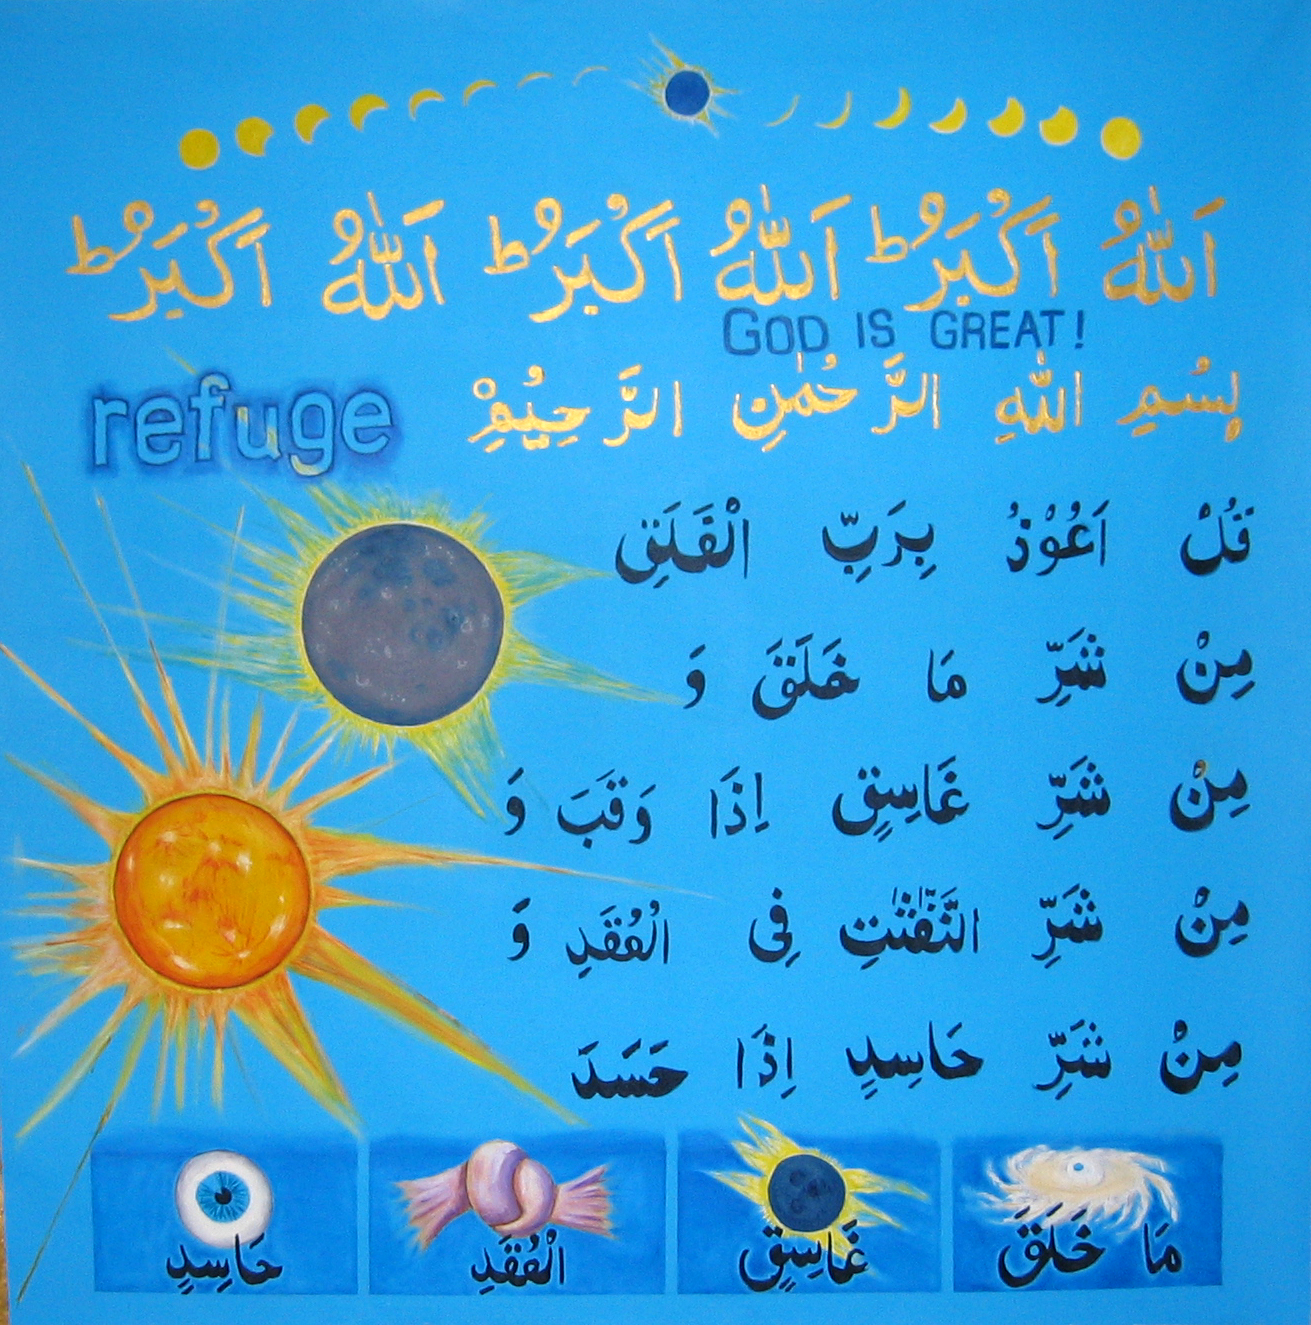 اَللّٰهُ اَكْبَرُ ط اَللّٰهُ اَكْبَرُ ط اَللّٰهُ اَكْبَرُ ط
GOD IS GREAT!
بِسْمِ اللّٰهِ الرَّحْمٰنِ الرَّحِيْمِ
refuge
قُلْ اَعُوْذُ بِرَبِّ الْفَلَقِ
مِنْ شَرِّ مَا خَلَقَ وَ
مِنْ شَرِّ غَاسِقٍ اِذَا وَقَبَ وَ
مِنْ شَرِّ النَّفّٰثٰتِ فِى الْعُقَدِ وَ
مِنْ شَرِّ حَاسِدٍ اِذَا حَسَدَ
مَا خَلَقَ
غَاسِقٍ
الْعُقَدِ
حَاسِدٍ